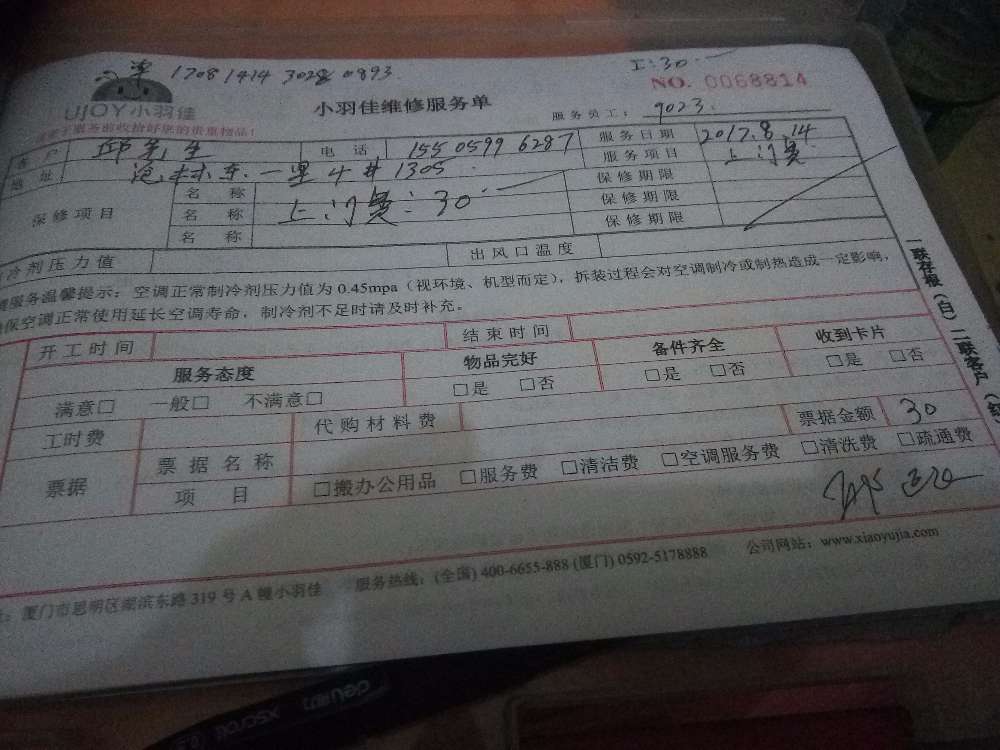 17081414 3028 0893
工:30
NO. 0068814
UJOY小羽佳
小羽佳维修服务单
服务员工: 9023
于服务前收拾好您的贵重物品!
客户 邱先生 电话 155 0599 6287 服务日期 2017.8.14
地址 东一里4#1305 服务项目 上门费
保修项目 名称 上门费:30 保修期限
名称 保修期限
名称 保修期限
冷剂压力值 出风口温度
服务温馨提示:空调正常制冷剂压力值为0.45mpa(视环境、机型而定),拆装过程会对空调制冷或制热造成一定影响,
保空调正常使用延长空调寿命,制冷剂不足时请及时补充。
开工时间 结束时间
服务态度 物品完好 备件齐全 收到卡片
满意□ 一般□ 不满意□ □是 □否 □是 □否 □是 □否
工时费 代购材料费 票据金额 30
票据 票据名称
项目 □搬办公用品 □服务费 □清洁费 □空调服务费 □清洗费 □疏通费
一联存根(白) 二联客户(红
厦门市思明区湖滨东路319号A幢小羽佳 服务热线:(全国) 400-6655-888 (厦门) 0592-5178888 公司网站:www.xiaoyujia.com
deli